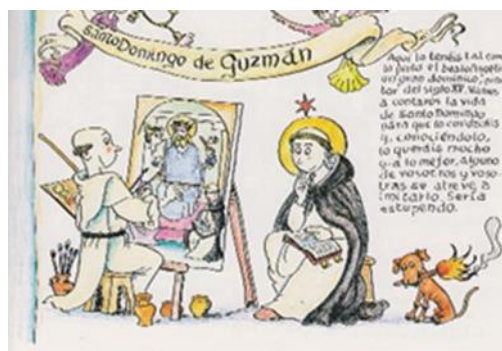 Santo Domingo de Guzmán
Aquí lo tenéis tal como
lo pinta el beato Angélico
un gran dominico, pin-
tor del siglo XV. Vamos
a contaros la vida
de Santo Domingo
para que lo conozcáis
y, conociéndolo,
lo queráis mucho
y a lo mejor, alguno
de vosotros y voso-
tras se atreve a
imitarlo. Sería
estupendo.